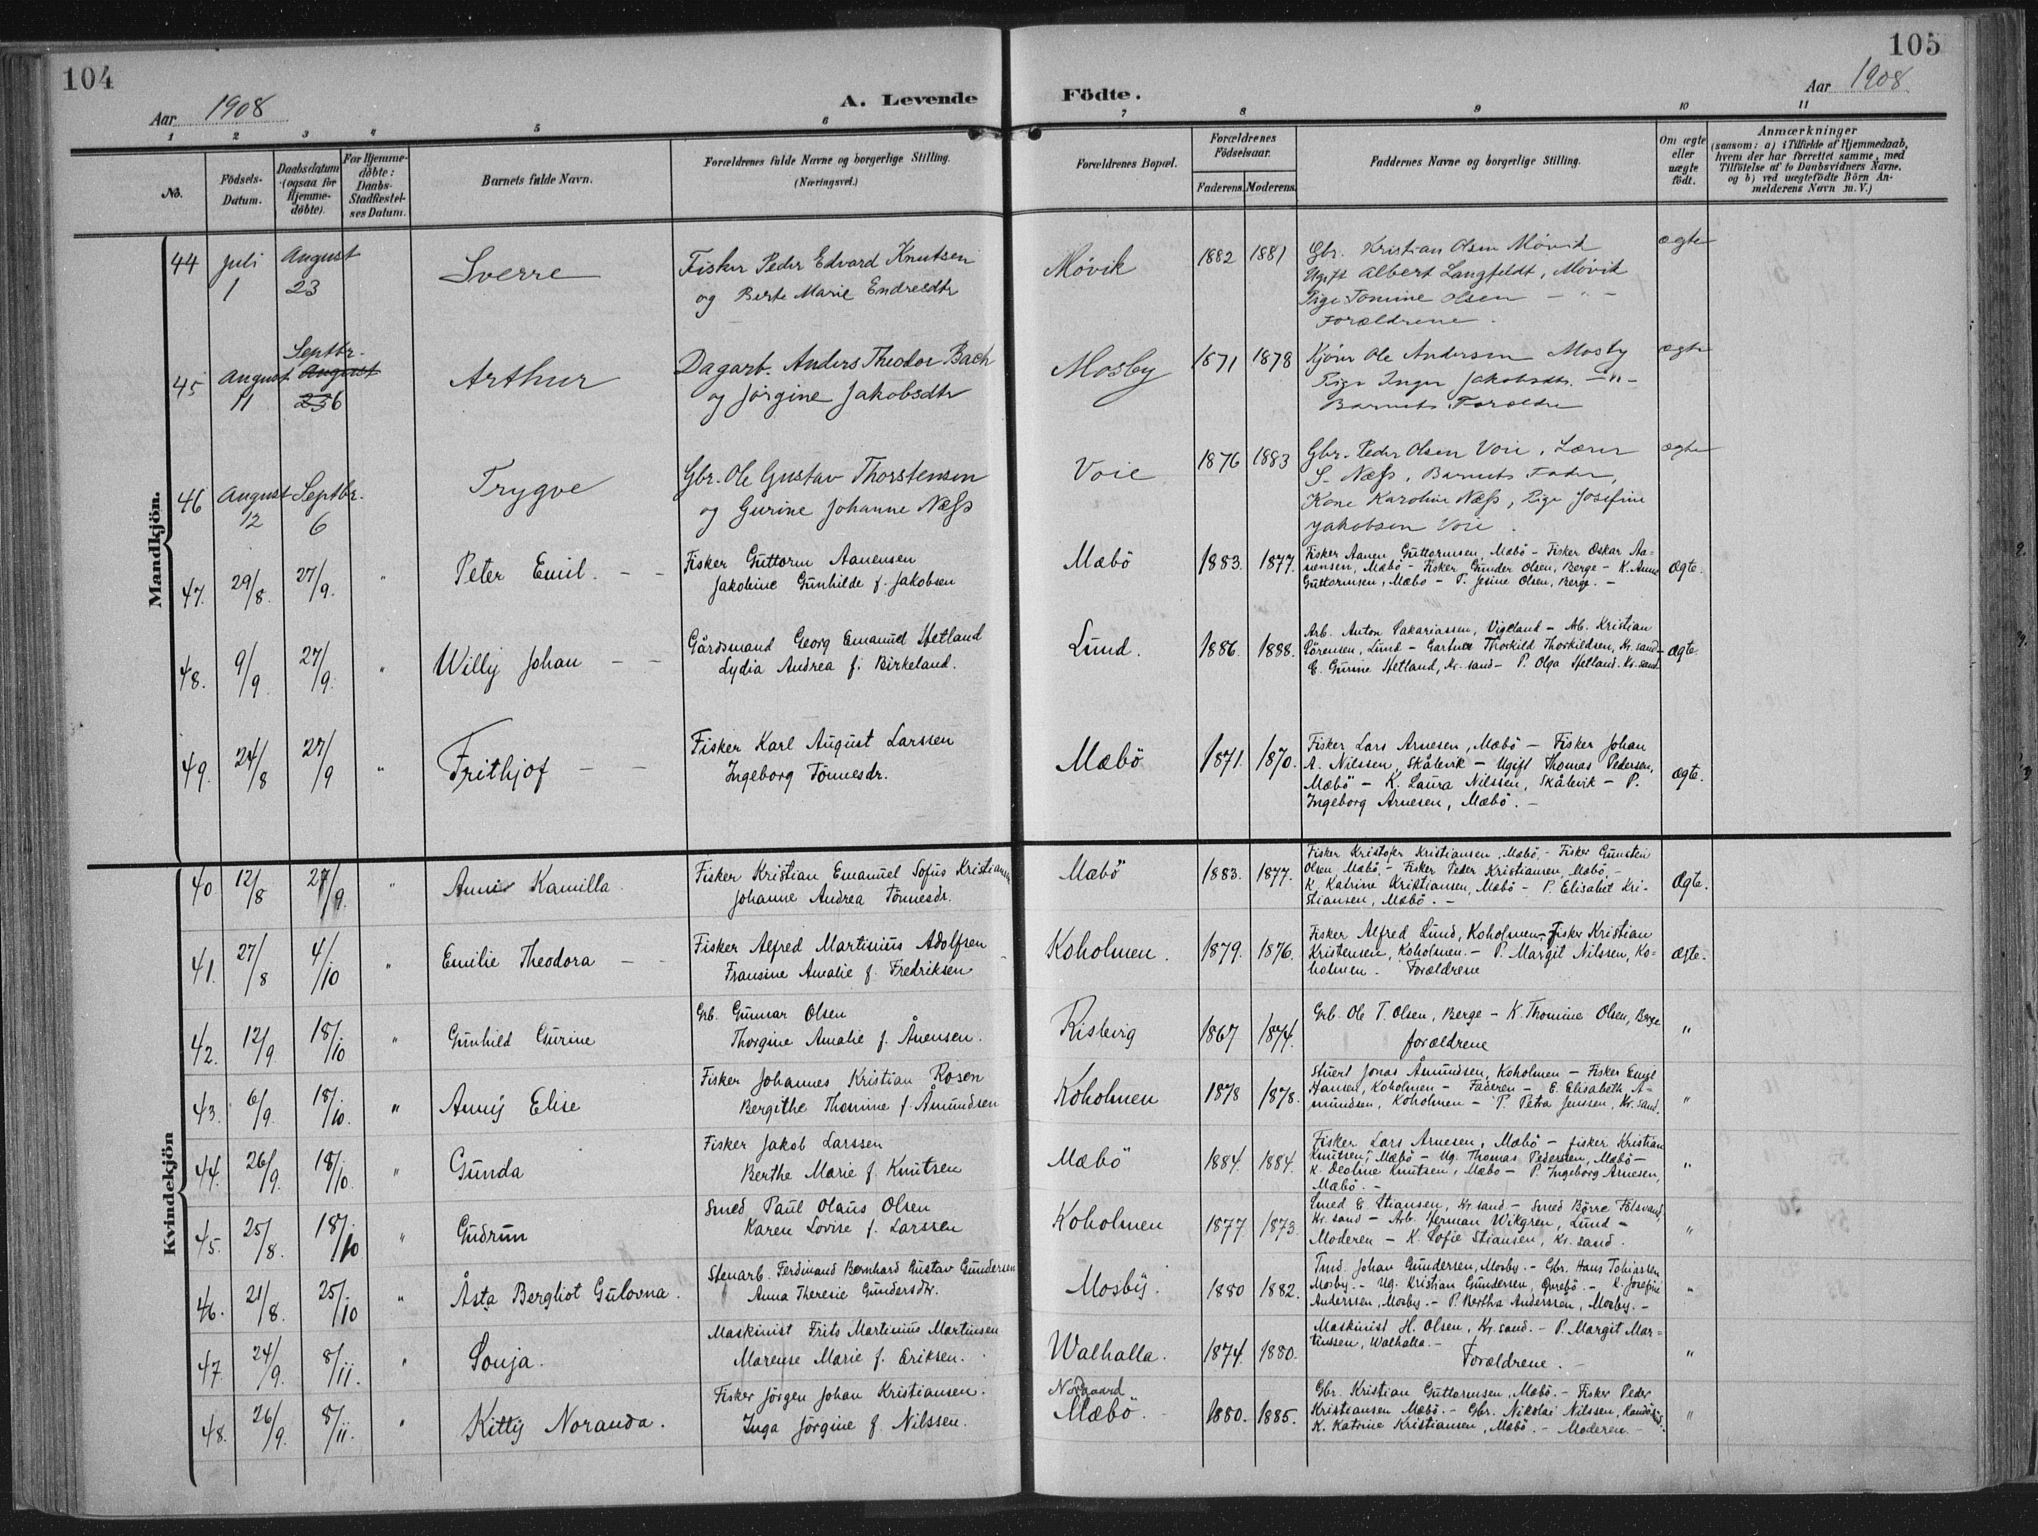 104
105
Aar 1908
A. Levende
Födte.
Aar 1908
1 2 3 4 5 6 7 8 9 10 11
No.
Födsels-
Datum.
Daabsdatum
(ogsaa for
Hjemme-
døbte).
For Hjemme-
døbte:
Daabs-
Stadfæstel-
ses Datum.
Barnets fulde Navn.
Forældrenes fulde Navne og borgerlige Stilling.
(Næringsvei.)
Forældrenes Bopæl.
Forældrenes
Födselsaar.
Faderens. Moderens.
Faddernes Navne og borgerlige Stilling.
Om ægte
eller
uægte
født.
Anmærkninger
(saasom: a) i Tilfælde af Hjemmedaab,
hvem der har forrettet samme, med
Tilföielse af to Daabsvidners Navne.
og b) ved uægtefödte Börn An-
melderens Navn m. V.)
Mandkjön.
44 Juli 1 August 23 Sverre
Fisker Peder Edvard Knutsen
og Berte Marie Endresdtr
Møvik 1882 1881
Gbr. Kristian Olsen Møvik
Ugift Albert Langfeldt, Møvik
Pige Tomine Olsen — " —
Forældrene.
ægte
45 August 11 Septbr. August 23 6 Arthur
Dagarb. Anders Theodor Bach
og Jørgine Jakobsdtr
Mosby 1871 1878
Ole Andersen Mosby
Pige Inger Jakobsdtr. — " —
Barnets Forældre
ægte
46 August 12 Septbr. 6 Trygve
Gbr. Ole Gustav Thorstensen
og Gurine Johanne Næss
Voie 1876 1883
Gbr. Peder Olsen Voie, Lærer
S. Næss, Barnets Fader,
Kone Karoline Næss, Pige Josefine
Jakobsen Voie.
ægte
47. 29/8 27/9. " Peter Emil. — —
Fisker Guttorm Aanensen
Jakobine Gunhilde f. Jakobsen
Mæbö 1883. 1877.
Fisker Aanen Guttormsen, Mæbö — Fisker Oskar Aa-
nensen, Mæbö — Fisker Gunder Olsen, Berge — K. Anne
Guttormsen, Mæbö — P. Jesine Olsen, Berge. —
ægte.
48. 9/9 27/9. " Willy Johan — —
Gårdsmand Georg Emanuel Hetland
Lydia Andrea f. Birkeland.
Lund. 1886. 1888.
Arb. Anton Sakariassen, Vigeland — Arb. Kristian
Sörensen, Lund — Gartner Thorkild Thorkildsen, Kr.sand —
E. Gurine Hetland, Kr.sand — P. Olga Hetland. Kr.sand
ægte.
49. 24/8 27/9 " Frithjof — —
Fisker Karl August Larssen
Ingeborg Tönnesdr.
Mæbö 1871. 1870.
Fisker Lars Arnesen, Mæbö — Fisker Johan
A. Nilssen, Skålevik — Ugift Thomas Pedersen,
Mæbö — K. Laura Nilssen, Skålevik — P.
Ingeborg Arnesen, Mæbö. —
ægte.
Kvindekjön
40 12/8 27/9. " Kamilla.
Fisker Kristian Emanuel Sofus Kristiansen
Johanne Andrea Tönnesdr.
Mæbö 1883. 1877.
Fisker Kristofer Kristiansen, Mæbö, — Fisker Gunsten
Olsen Mæbö, — Fisker Peder Kristiansen, Mæbö, —
K. Katrine Kristiansen, Mæbö — P. Elisabet Kri-
stiansen, Mæbö. —
Ægte.
41. 27/8 4/10 " Emilie Theodora — —
Fisker Alfred Martinius Adolfsen
Fransine Amalie f. Fredriksen
Koholmen. 1879. 1876.
Fisker Alfred Lund, Koholmen — Fisker Kristian
Kristensen, Koholmen. — P. Margit Nilssen, Ko-
holmen. Forældrene
ægte.
42. 12/9 18/10 " Gunhild Gurine
Grb. Gunnar Olsen
Thorgine Amalie f. Ånensen.
Risberg 1867 1874.
Grb. Ole T. Olsen, Berge — K. Thomine Olsen, Berge
forældrene
"
43. 6/9. 18/10. " Anny Elise
Fisker Johannes Kristian Rosen
Bergithe Thomine f. Åmundsen
Koholmen 1878 1878.
Stuert Jonas Åmundsen, Koholmen — Fisker Emil
Hansen, Koholmen — Faderen — E. Elisabeth A-
mundsen, Koholmen — P. Petra Jenssen, Kr.sand.
"
44. 26/9. 18/10. " Gunda
Fisker Jakob Larssen
Berthe Marie f. Knutsen
Mæbö 1884. 1884.
Fisker Lars Arnesen, Mæbö — fisker Kristian
Knutsen, Mæbö — Ug. Thomas Pedersen, Mæbö —
K. Deoline Knutsen, Mæbö — P. Ingeborg Arnesen,
Mæbö. —
"
45. 25/8. 18/10 " Gudrun
Smed Paul Olaus Olsen
Karen Lovise f. Larssen
Koholmen 1877. 1873.
Smed E Stiansen, Kr.sand — Smed Börre Falsvand,
Kr.sand — Arb. Herman Wikgren, Lund —
Moderen — K. Sofie Stiansen, Kr.sand.
"
46. 21/8. 25/10 " Åsta Bergliot Gulovna.
Stenarb. Ferdinand Bernhard Gustav Gundersen
Anna Theresie Gundersdtr.
Mosby. 1880 1882.
Tmd. Johan Gundersen, Mosby. — Gbr. Hans Tobiassen
Mosby. — Ug. Kristian Gundersen, Øvrebö. — K. Josefine
Anderssen, Mosby. — P. Bertha Anderssen, Mosby. —
"
47 24/9. 8/11. " Sonja.
Maskinist Frits Martinius Martinsen
Marense Marie f. Eriksen.
Walhalla. 1874. 1880.
Maskinist H. Olsen, Kr.sand. — P. Margit Mar-
tinssen, Walhalla. —
Forældrene. —
"
48. 26/9. 8/11. " Kitty Noranda.
Fisker Jörgen Johan Kristiansen.
Inga Jörgine f. Nilssen.
Nordgaard
Mæbö. 1880. 1885.
Gbr. Kristian Guttormsen, Mæbö. — Fisker Peder
Kristiansen Mæbö. — Gbr. Nikolai Nilssen,
K. Katrine Kristiansen, Mæbö. — Moderen —
"